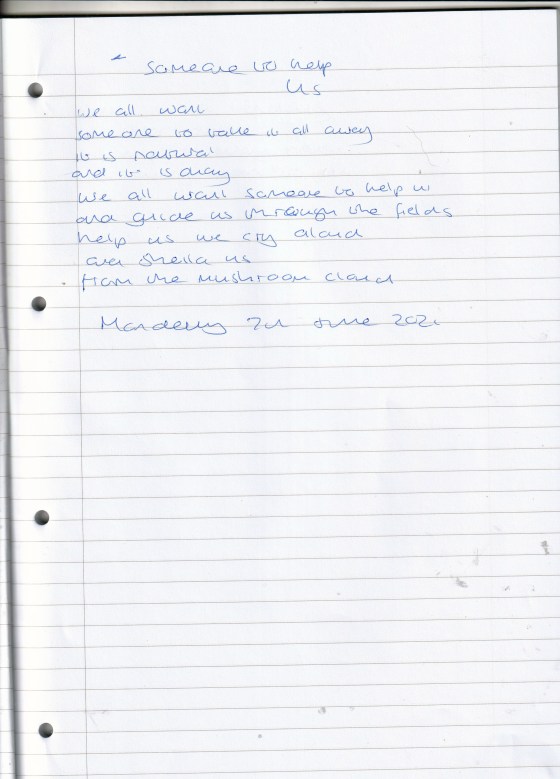 Someone to help
Us
we all want
someone to take it all away
it is natural
and it is okay
we all want someone to help us
and guide us through the fields
help us we cry aloud
and shield us
from the mushroom cloud
Monday 7th June 2021